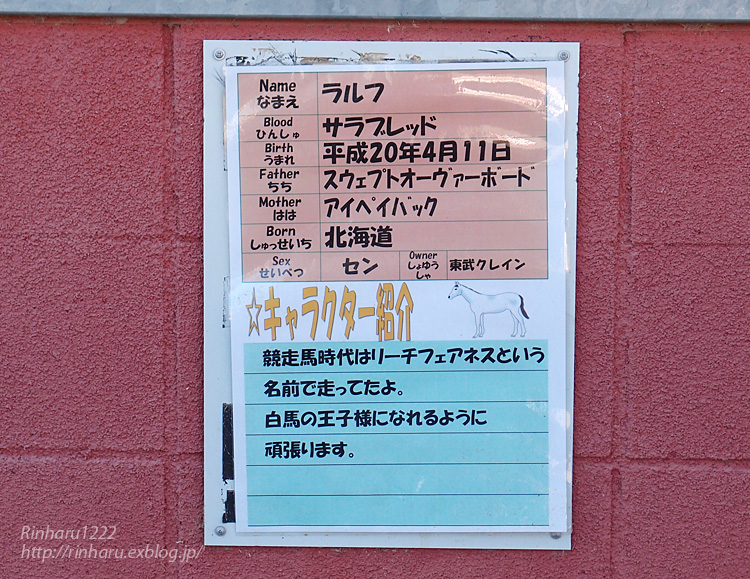 Name
なまえ
ラルフ
Blood
ひんしゅ
サラブレッド
Birth
うまれ
平成20年4月11日
Father
ちち
スウェプトオーヴァーボード
Mother
はは
アイペイバック
Born
しゅっせいち
北海道
Sex
せいべつ
セン
Owner
しょゆう
しゃ
東武クレイン
☆キャラクター紹介
競走馬時代はリーチフェアネスという
名前で走ってたよ。
白馬の王子様になれるように
頑張ります。
Rinharu1222
http://rinharu.exblog.jp/